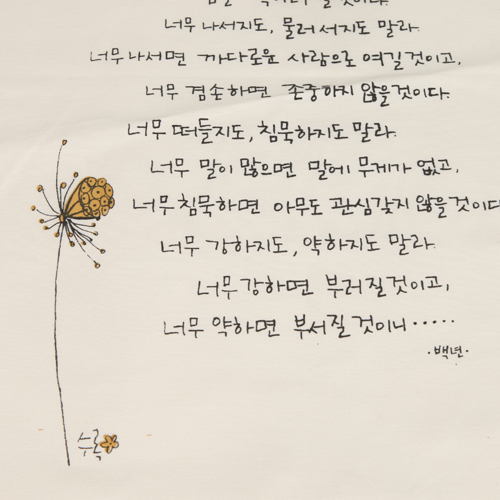 너무 나서지도, 물러서지도 말라.
너무 나서면 까다로운 사람으로 여길것이고,
너무 겸손하면 존중하지 않을것이다.
너무 떠들지도, 침묵하지도 말라.
너무 말이 많으면 말에 무게가 없고,
너무 침묵하면 아무도 관심갖지 않을것이다
너무 강하지도, 약하지도 말라.
너무 강하면 부러질것이고,
너무 약하면 부서질것이니·····
·백년·
수록